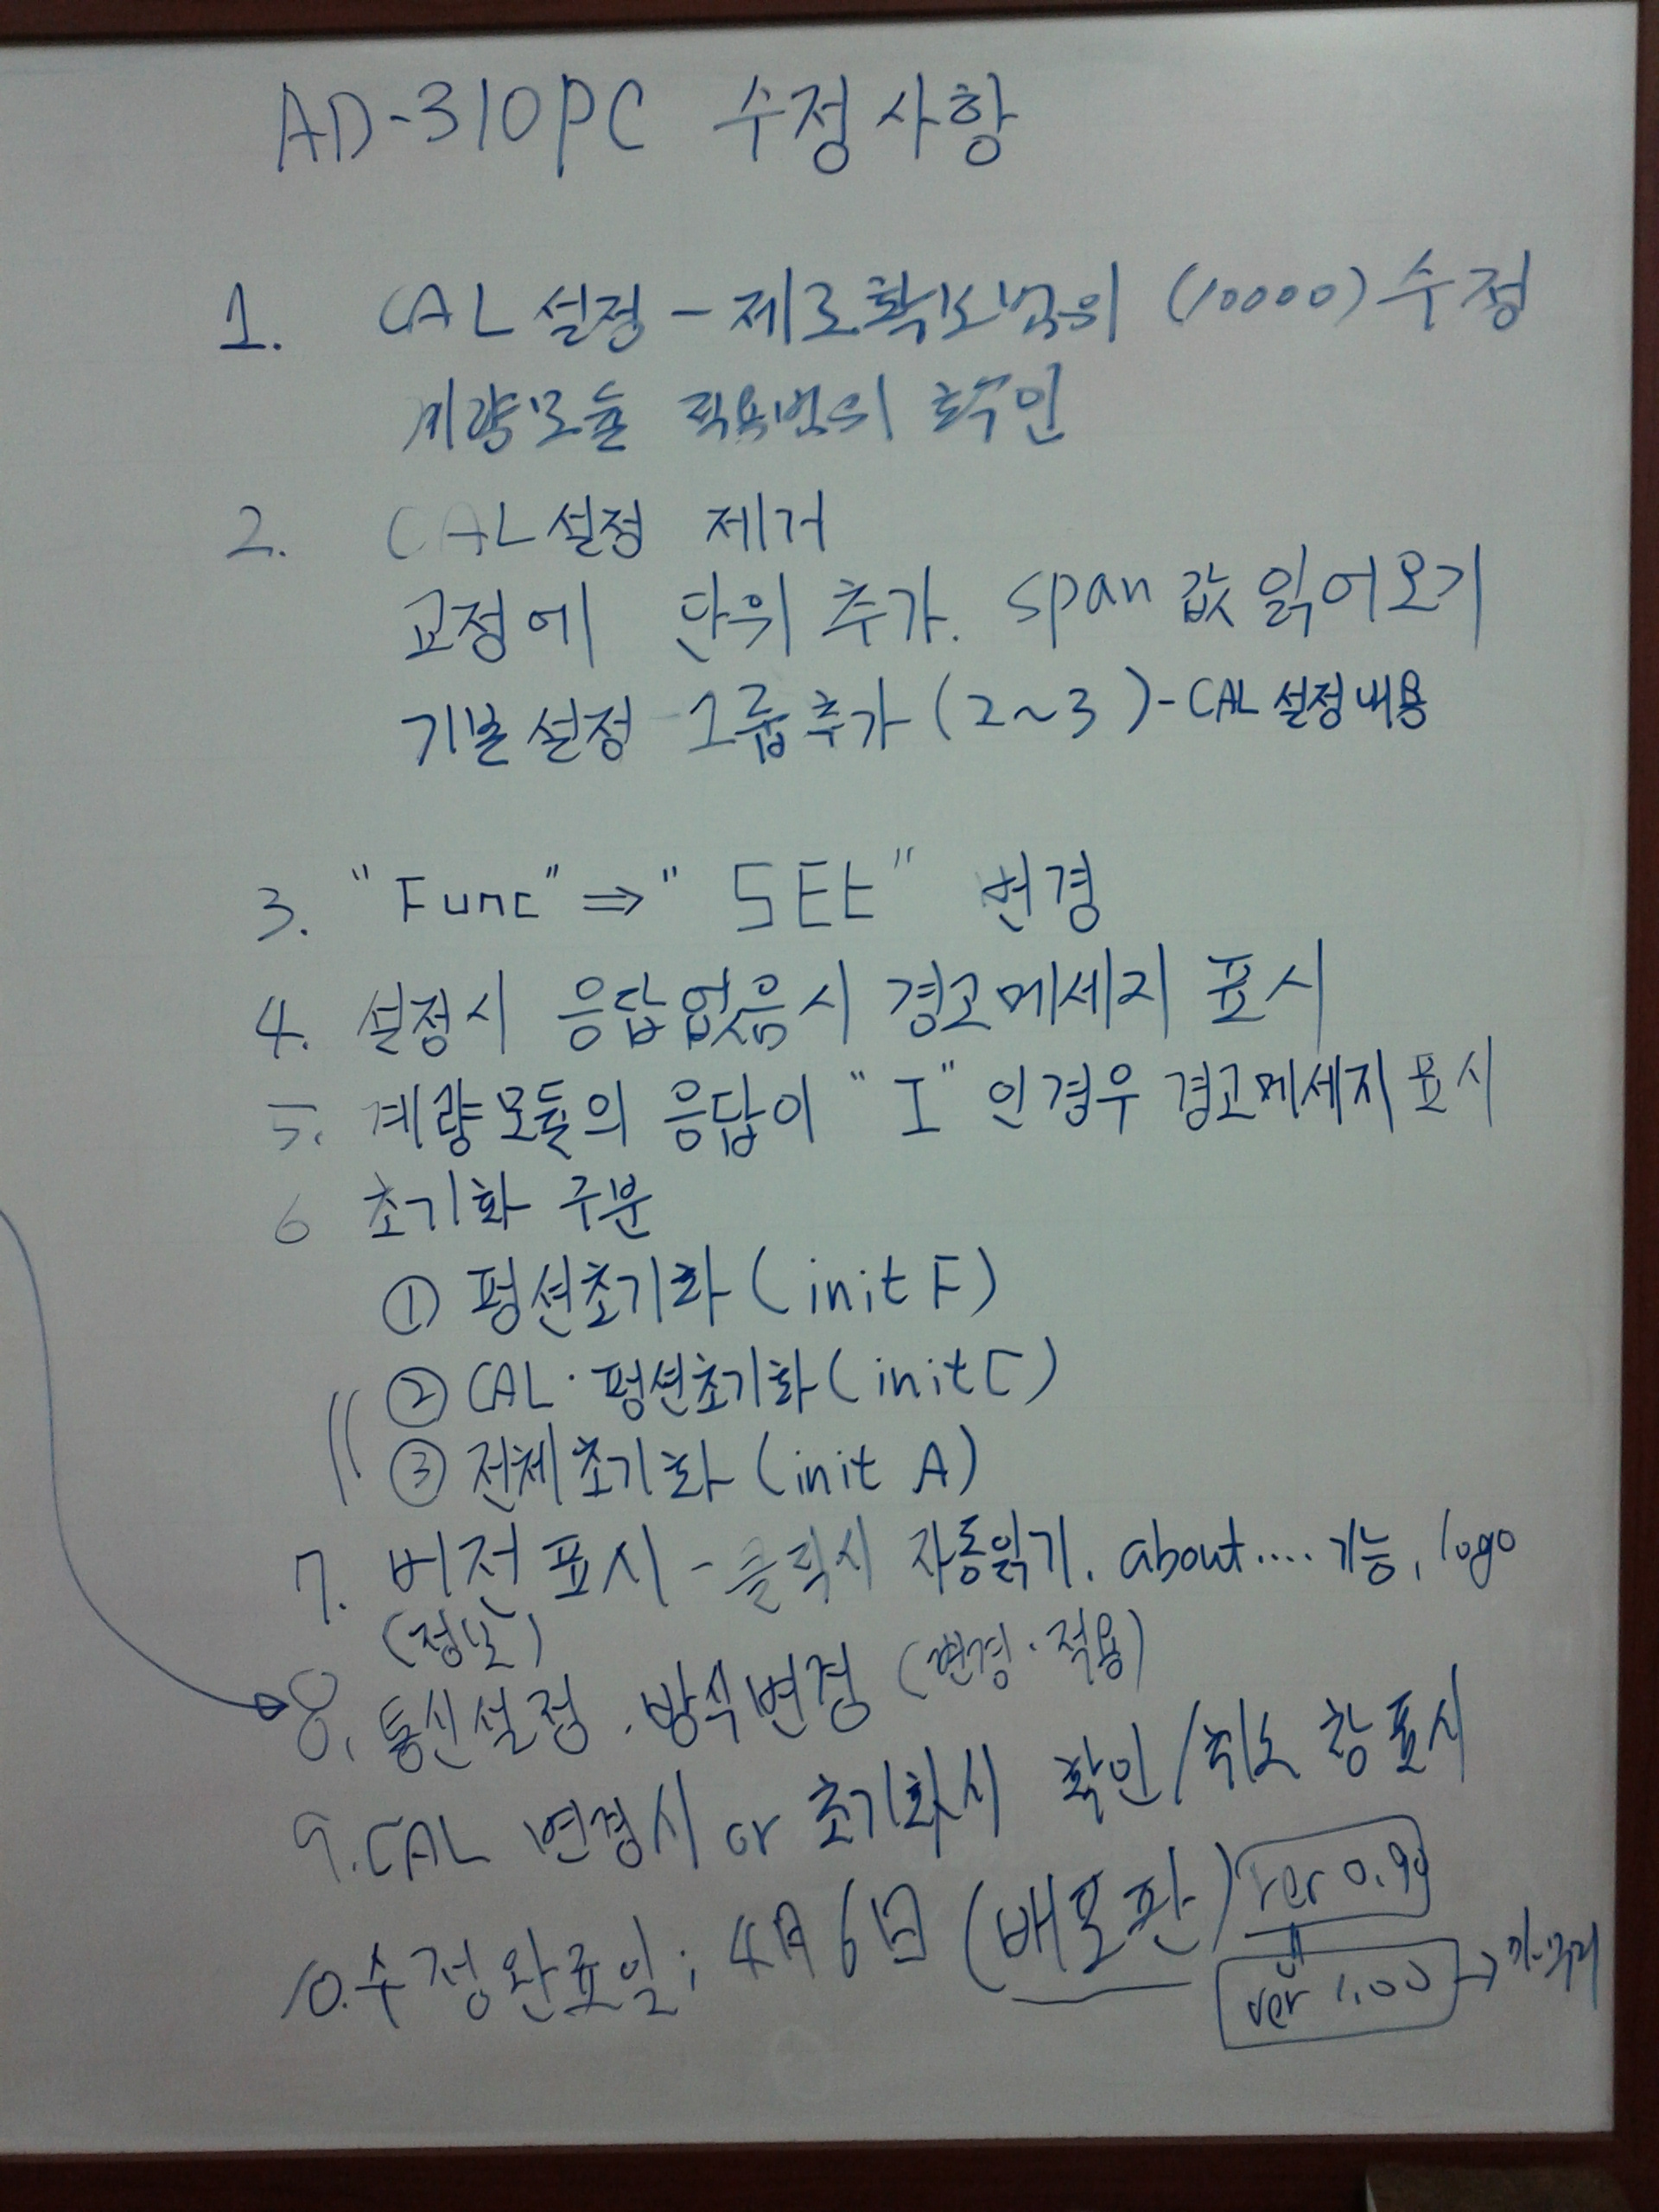 AD-310PC 수정사항
1. CAL 설정 - 제로확보범위 (10000) 수정
계량모듈 적용범위 확인
2. CAL설정 제거
교정에 단위 추가. span 값 읽어오기
기본설정 그룹추가 (2~3) - CAL 설정내용
3. "Func" ⇒ "SEt" 변경
4. 설정시 응답없음시 경고메세지 표시
5. 계량모듈의 응답이 "I" 인경우 경고메세지 표시
6 초기화 구분
① 펑션초기화 (init F)
② CAL·펑션초기화 (init C)
③ 전체초기화 (init A)
7. 버전표시 - 클릭시 자동읽기. about.... 기능, logo
(정보)
8. 통신설정. 방식변경 (변경·적용)
9. CAL 변경시 or 초기화시 확인/취소 창 표시
10. 수정완료일; 4月 6日 (배포판) ver 0.99
ver 1.00 →